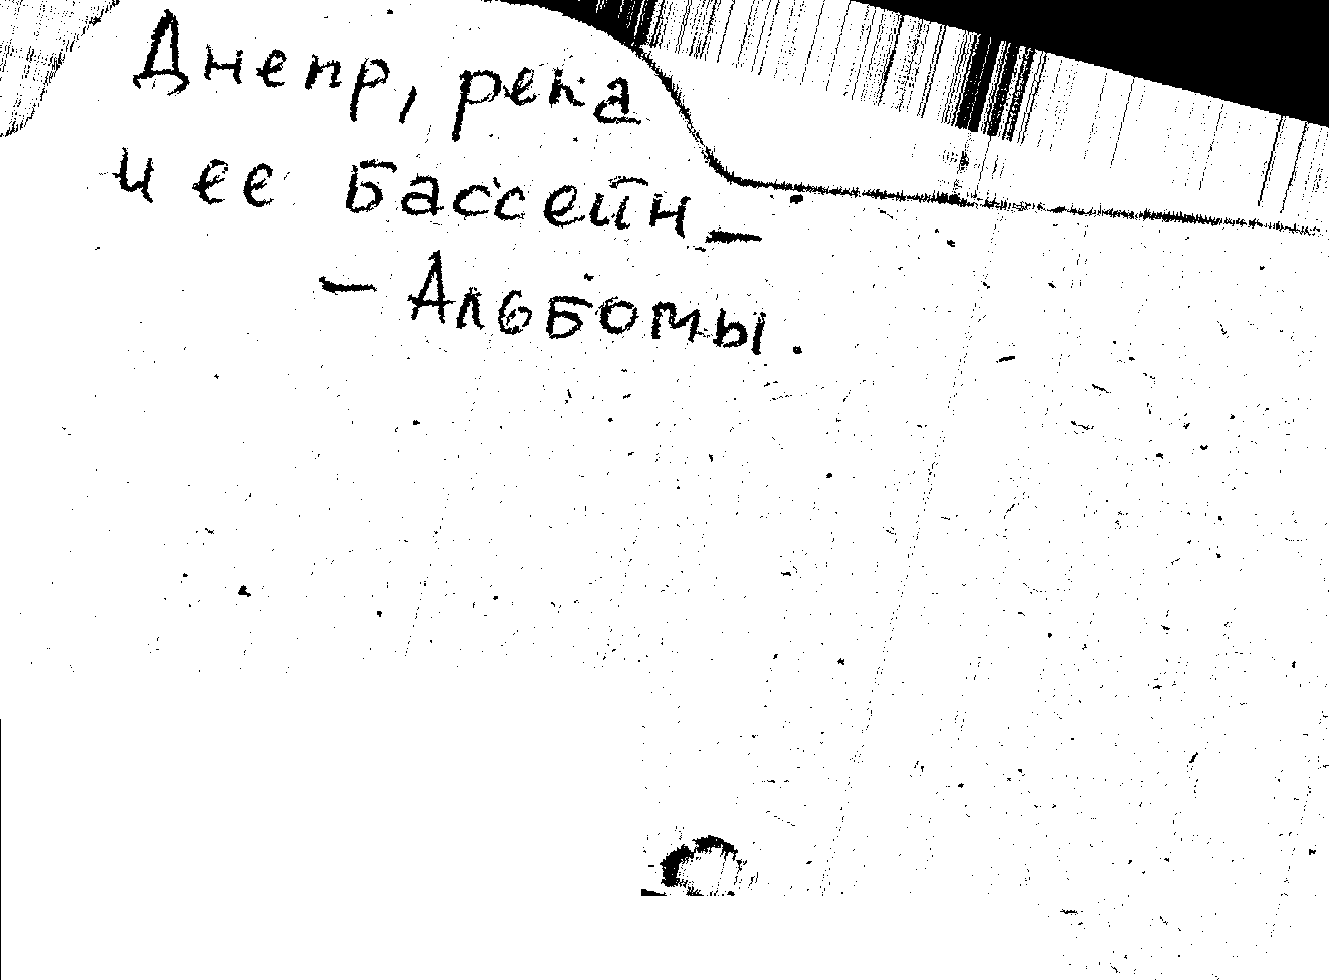 Днепр, река
и ее бассейн –
– Альбомы.